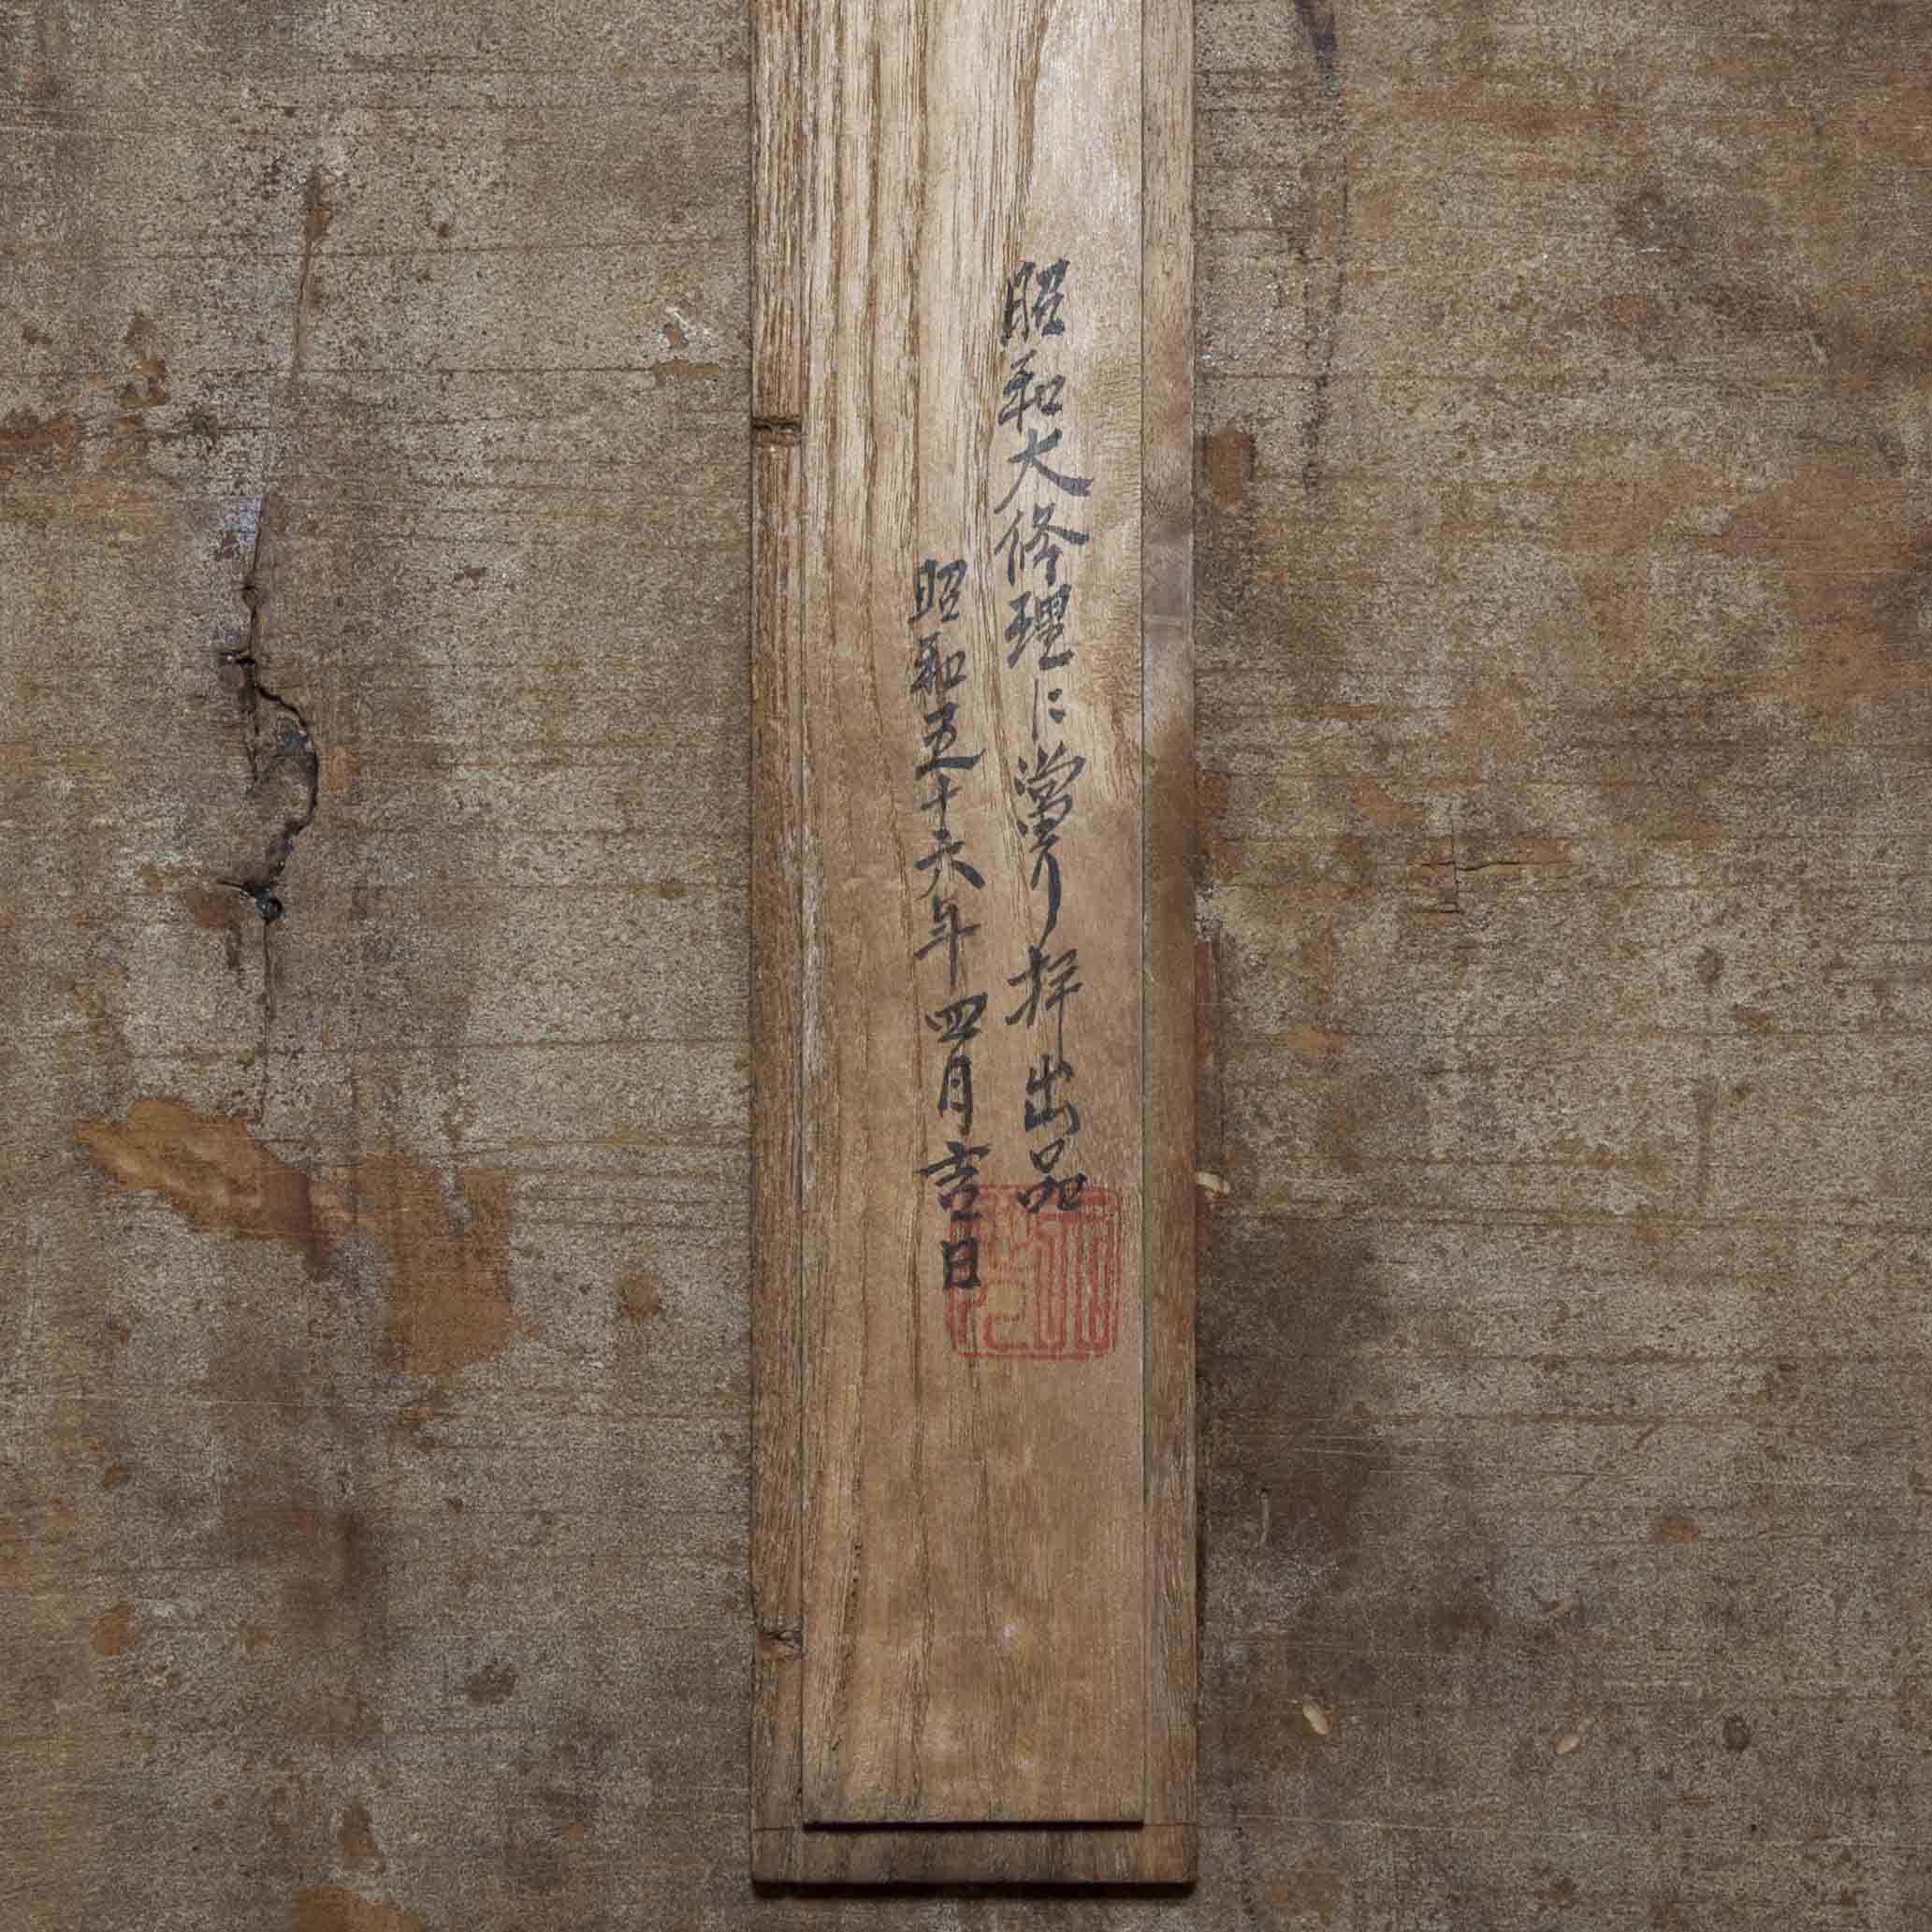 昭和大修理に當り拝出品
昭和五十六年四月吉日